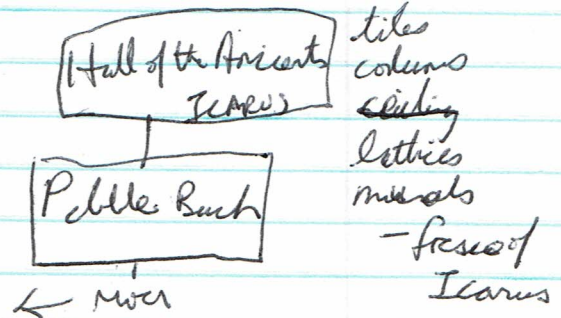 Hall of the Ancients
ICARUS
Pebble Beach
← 
tiles
columns
ceiling
lattices
murals
- fresco of
Icarus